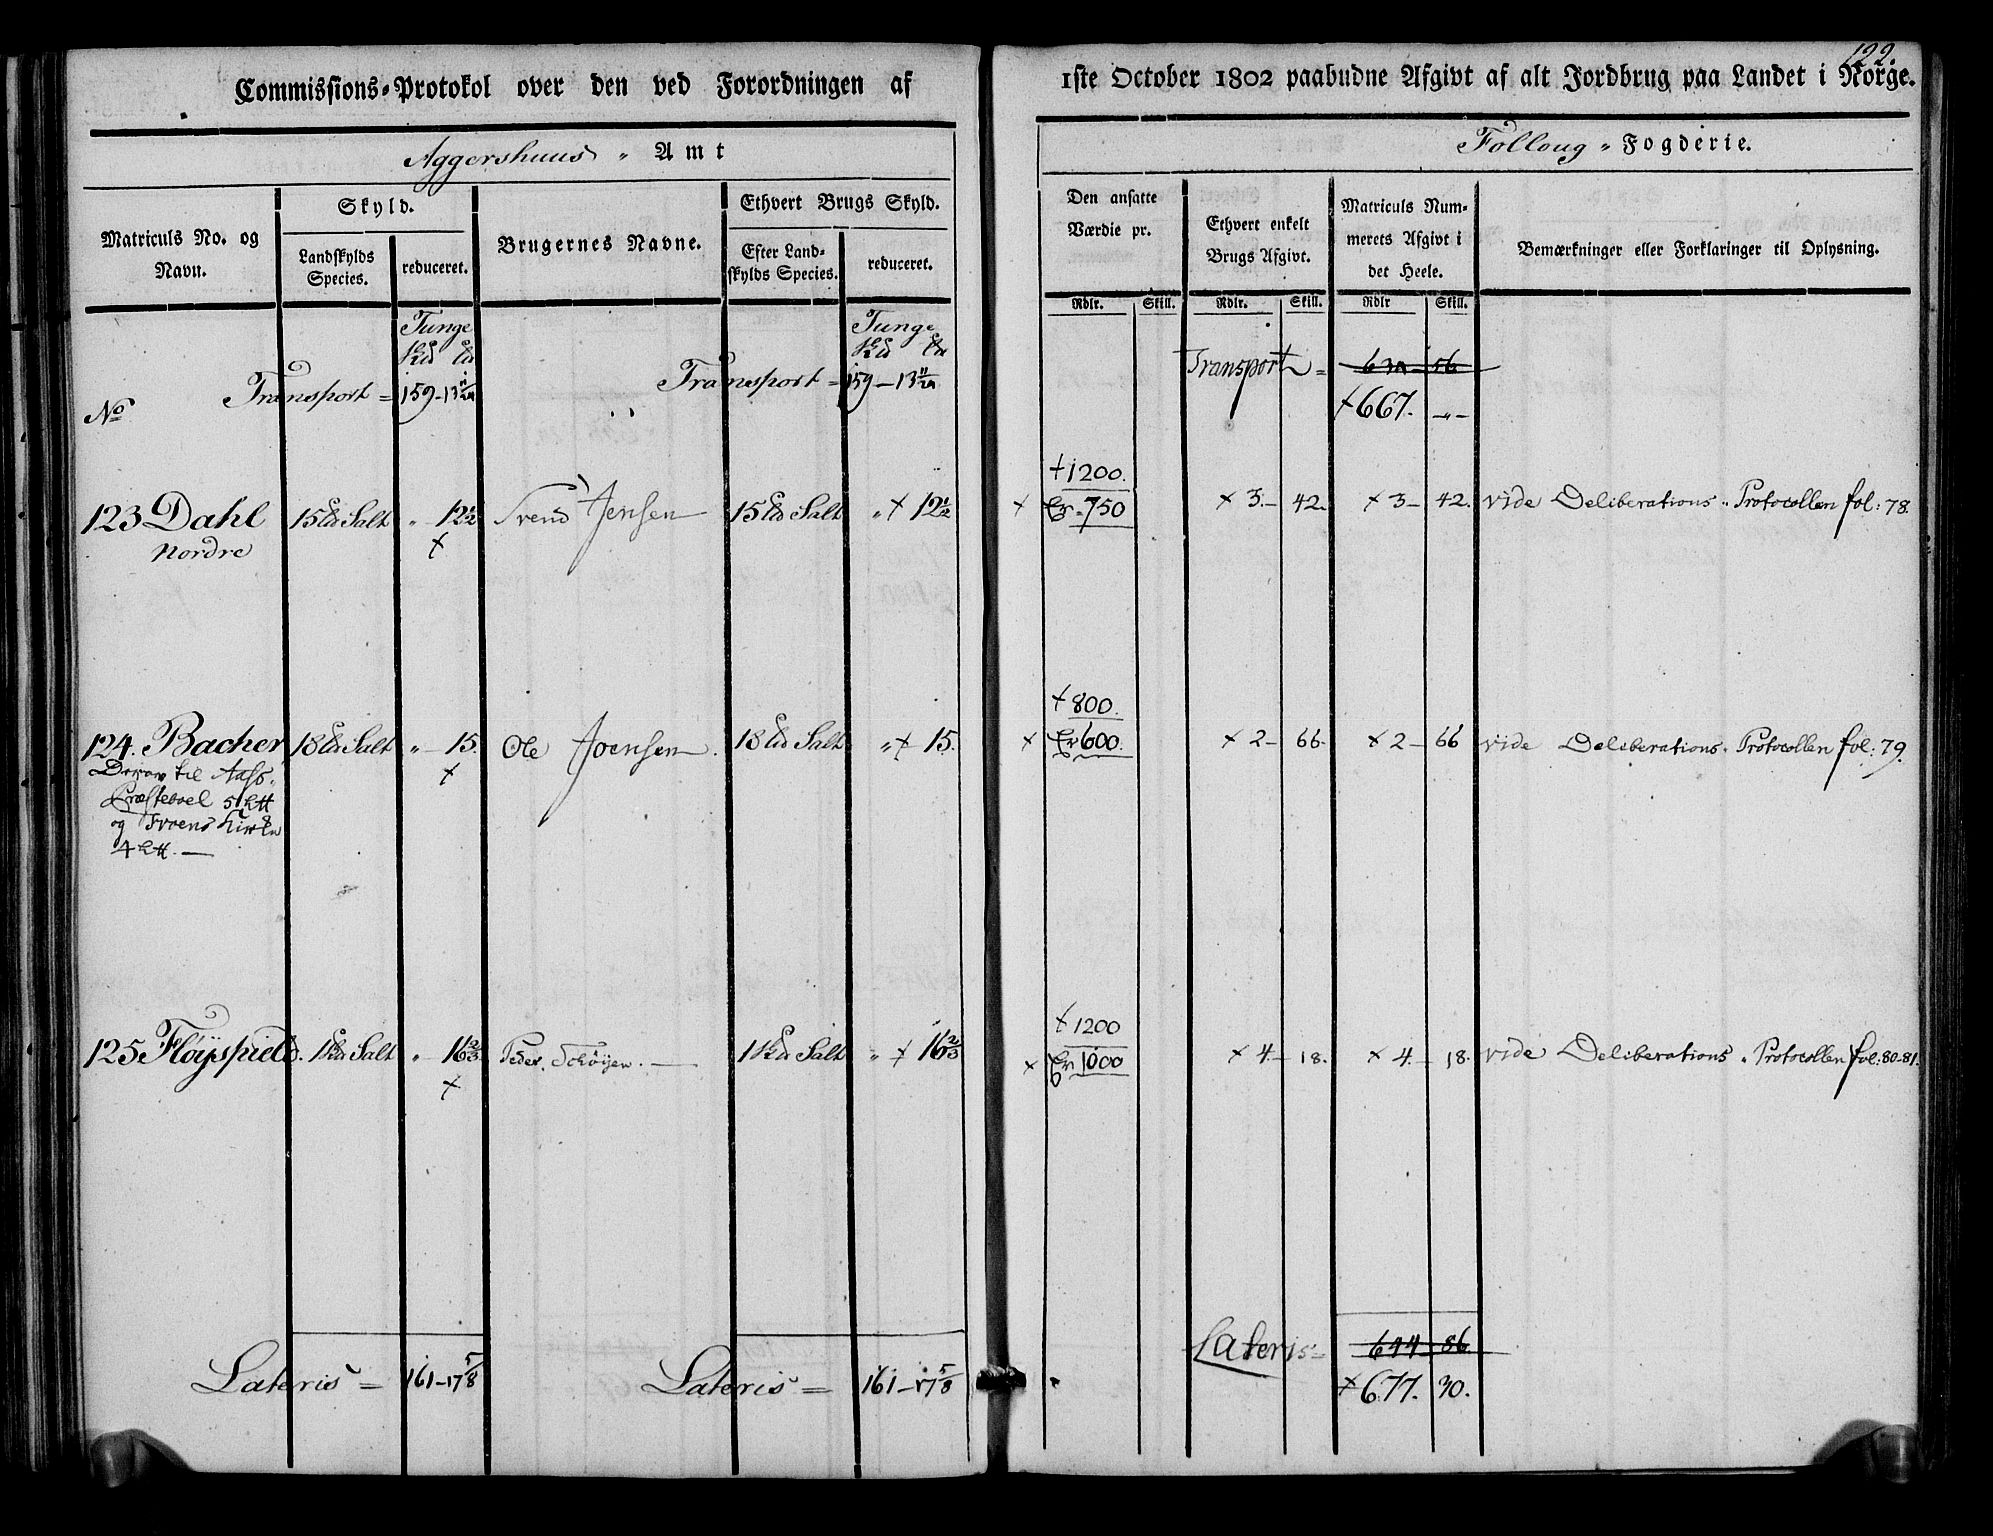 122.
Commissions-Protokol over den ved Forordningen af
1ste October 1802 paabudne Afgivt af alt Jordbrug paa Landet i Norge.
Aggershuus Amt
Folloug Fogderie.
Matriculs No. og Navn.
Skyld.
Landskylds Species.
reduceret.
Brugernes Navne.
Ethvert Brugs Skyld.
Efter Landskylds Species.
reduceret.
Den ansatte Værdie pr.
Rdlr. Skill.
Ethvert enkelt Brugs Afgivt.
Rdlr. Skill.
Matriculs Nummerets Afgivt i det Heele.
Rdlr Skill.
Bemærkninger eller Forklaringer til Oplysning.
Tunge Tunge
No Transport = 159-13 11/24 Transport = 159-13 11/24 Transport = 56
+667. -"-
+1200.
123 Dahl 15 Salt " 12½ Svend Jensen 15 Salt " + 12½ + 750 + 3- 42. + 3- 42. vide Deliberations Protocollen fol: 78.
Nordre +
+800.
124. Bacher 18 Salt " 15. Ole Joensen. 18 Salt " + 15. + 600. + 2- 66. + 2- 66 vide Deliberations Protocollen fol: 79.
Derav til Aass +
Præsteboel 5
og Froens
4
+1200
125 Fløyspield. 1 Salt " 16⅔ Peder Schøyen. 1 Salt " + 16⅔ + 1000 + 4- 18. + 4- 18. vide Deliberations Protocollen fol: 80-81.
+
Lateris = 161-17 5/8 Lateris = 161-17 5/8 Lateris = 644 86
+677. 30.